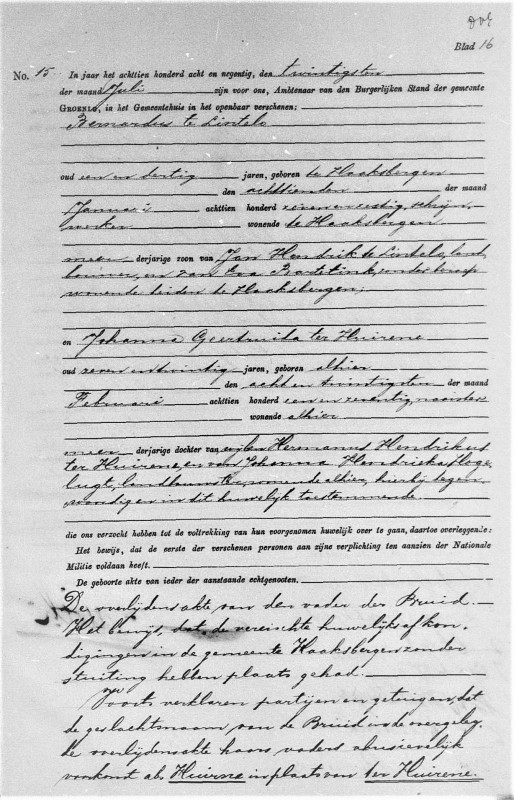 Blad 16
No. 15 In jaar het achttien honderd acht en negentig, den twintigsten
der maand Juli zijn voor ons, Ambtenaar van den Burgerlijken Stand der gemeente
GROENLO, in het Gemeentehuis in het openbaar verschenen:
Bernardus te Lintelo
oud een en dertig jaren, geboren te Haaksbergen
den achttienden der maand
Januari achttien honderd zeven en zestig, schrijn
werker wonende te Haaksbergen
meer derjarige zoon van Jan Hendrik te Lintelo, land
bouwer, en van Eva zonder beroep
wonende beiden te Haaksbergen;
en Johanna Geertruida ter Huirene
oud zeven en twintig jaren, geboren alhier
den acht en twintigsten der maand
Februari achttien honderd een en zeventig naaister
wonende alhier
meer derjarige dochter van wijlen Hermanus Hendrikus
ter Huirene, en van Johanna Hendrika
landbouwster, wonende alhier, hierbij tegen-
woordig en in dit huwelijk toestemmende.
die ons verzocht hebben tot de voltrekking van hun voorgenomen huwelijk over te gaan, daartoe overleggende:
Het bewijs, dat de eerste der verschenen personen aan zijne verplichting ten aanzien der Nationale
Militie voldaan heeft.
De geboorte akte van ieder der aanstaande echtgenooten.
De overlijdensakte van den vader der Bruid.
Het bewijs, dat de vereischte huwelijksafkon-
digingen in de gemeente Haaksbergen zonder
stuiting hebben plaats gehad.
Voorts verklaren partijen en getuigen, dat
de geslachtsnaam van de Bruid in de overgeleg-
de overlijdensakte haars vaders abusievelijk
voorkomt als Huirne in plaats van ter Huirene.